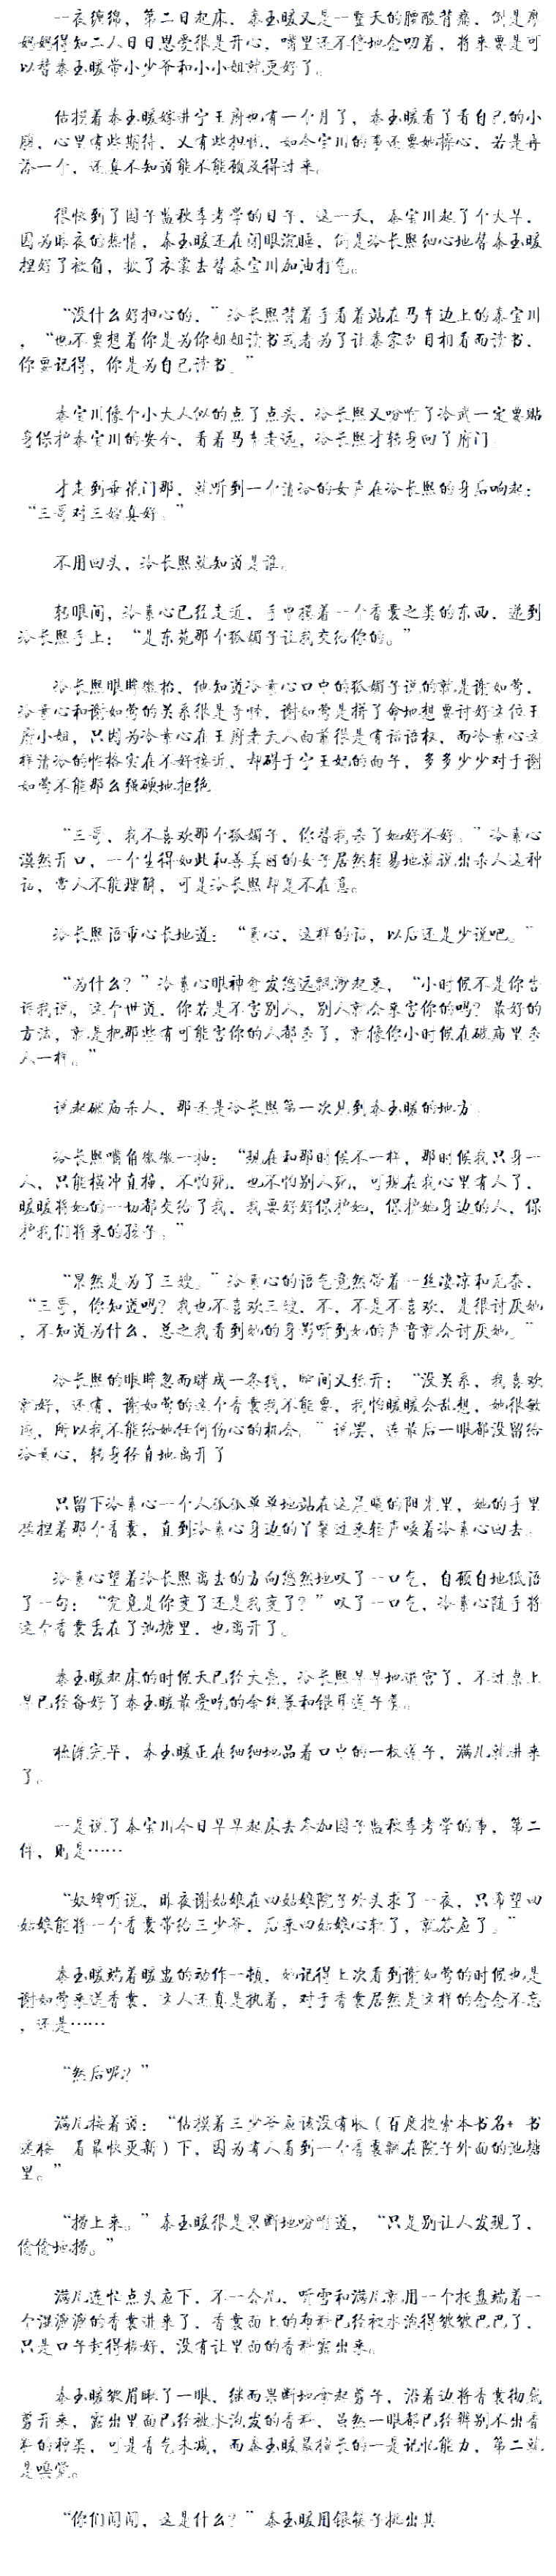 一夜缠绵，第二日起床，秦玉暖又是一整天的腰酸背痛，倒是廖
妈妈得知二人日日恩爱很是开心，嘴里还不停地念叨着，将来要是可
以替秦玉暖带小少爷和小小姐就更好了。
估摸着秦玉暖嫁进宁王府也有一个月了，秦玉暖看了看自己的小
腹，心里有些期待，又有些担忧，如今宝川的事还要她操心，若是再
添一个，还真不知道能不能顾及得过来。
很快到了国子监秋季考学的日子，这一天，秦宝川起了个大早，
因为昨夜的热情，秦玉暖还在闭眼沉睡，倒是冷长熙细心地替秦玉暖
捏好了被角，披了衣裳去替秦宝川加油打气。
“没什么好担心的，”冷长熙背着手看着站在马车边上的秦宝川
，“也不要想着你是为你姐姐读书或者为了让秦家刮目相看而读书，
你要记得，你是为自己读书。”
秦宝川像个小大人似的点了点头，冷长熙又吩咐了冷武一定要贴
身保护秦宝川的安全，看着马车走远，冷长熙才转身回了府门。
才走到垂花门那，就听到一个清冷的女声在冷长熙的身后响起：
“三哥对三嫂真好。”
不用回头，冷长熙就知道是谁。
转眼间，冷素心已经走近，手中握着一个香囊之类的东西，递到
冷长熙手上：“是东苑那个狐媚子让我交给你的。”
冷长熙眼眸微抬，他知道冷素心口中的狐媚子说的就是谢如莺，
冷素心和谢如莺的关系很是奇怪，谢如莺是拼了命地想要讨好这位王
府小姐，只因为冷素心在王府老夫人面前很是有话语权，而冷素心这
样清冷的性格实在不好接近，却碍于宁王妃的面子，多多少少对于谢
如莺不能那么强硬地拒绝。
“三哥，我不喜欢那个狐媚子，你替我杀了她好不好。”冷素心
漠然开口，一个生得如此和善美好的女子居然轻易地就说出杀人这种
话，常人不能理解，可是冷长熙却是不在意。
冷长熙语重心长地道：“素心，这样的话，以后还是少说吧。”
“为什么？”冷素心眼神愈发悠远飘渺起来，“小时候不是你告
诉我说，这个世道，你若是不害别人，别人就会来害你的吗？最好的
方法，就是把那些有可能害你的人都杀了，就像你小时候在破庙里杀
人一样。”
说起破庙杀人，那还是冷长熙第一次见到秦玉暖的地方。
冷长熙嘴角微微一抽：“现在和那时候不一样，那时候我只身一
人，只能横冲直撞，不怕死，也不怕别人死，可现在我心里有人了，
暖暖将她的一切都交给了我，我要好好保护她，保护她身边的人，保
护我们将来的孩子。”
“果然是为了三嫂。”冷素心的语气竟然带着一丝凄凉和无奈，
“三哥，你知道吗？我也不喜欢三嫂，不，不是不喜欢，是很讨厌她
，不知道为什么，总之我看到她的身影听到她的声音就会讨厌她。”
冷长熙的眼眸忽而眯成一条线，瞬间又张开：“没关系，我喜欢
就好，还有，谢如莺的这个香囊我不能要，我怕暖暖会乱想，她很敏
感，所以我不能给她任何伤心的机会。”说罢，连最后一眼都没留给
冷素心，转身径直地离开了
只留下冷素心一个人孤孤单单地站在这晨曦的阳光里，她的手里
揉捏着那个香囊，直到冷素心身边的丫鬟过来轻声唤着冷素心回去。
冷素心望着冷长熙离去的方向悠然地叹了一口气，自顾自地低语
了一句：“究竟是你变了还是我变了？”叹了一口气，冷素心随手将
这个香囊丢在了池塘里，也离开了。
秦玉暖起床的时候天已经大亮，冷长熙早早地进宫了，不过桌上
早已经备好了秦玉暖最爱吃的金丝卷和银耳莲子羹。
梳洗完毕，秦玉暖正在细细地品着口中的一枚莲子，满儿就进来
了。
一是说了秦宝川今日早早起床去参加国子监秋季考学的事，第二
件，则是……
“奴婢听说，昨夜谢姑娘在四姑娘院子外头求了一夜，只希望四
姑娘能将一个香囊带给三少爷，后来四姑娘心软了，就答应了。”
秦玉暖端着暖盅的动作一顿，她记得上次看到谢如莺的时候也是
谢如莺来送香囊，这人还真是执着，对于香囊居然是这样的念念不忘
，还是……
“然后呢？”
满儿接着道：“估摸着三少爷应该没有收（百度搜索本书名+ 书
迷楼 看最快更新）下，因为有人看到一个香囊飘在院子外面的池塘
里。”
“捞上来。”秦玉暖很是果断地吩咐道，“只是别让人发现了，
偷偷地捞。”
满儿连忙点头应下，不一会儿，听雪和满儿就用一个托盘端着一
个湿漉漉的香囊进来了，香囊面上的布料已经被水泡得皱皱巴巴了，
只是口子封得极好，没有让里面的香料露出来。
秦玉暖皱眉瞅了一眼，继而果断地拿起剪子，沿着边将香囊彻底
剪开来，露出里面已经被水泡发的香料，虽然一眼都已经辨别不出香
料的种类，可是香气未减，而秦玉暖最擅长的一是记忆能力，第二就
是嗅觉。
“你们闻闻，这是什么？”秦玉暖用银筷子挑出其